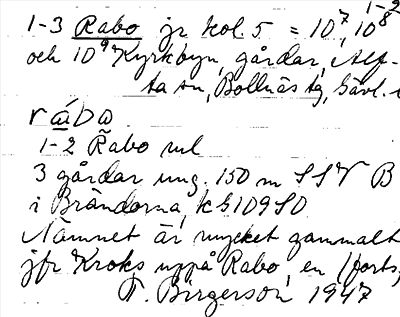 1-2
1-3 Rabo jr kol. 5 = 10⁷, 10⁸
och 10⁹ Kyrkbyn, gårdar, Alf-
ta sn, Bollnäs tg, Gävl. l
råbo
1-2 Rabo ml
3 gårdar ung. 150 m SSV B
i Brändorna, k G109SO
Namnet är mycket gammalt
jfr Kroks uppå Rabo, en (forts,
T. Birgerson 1947